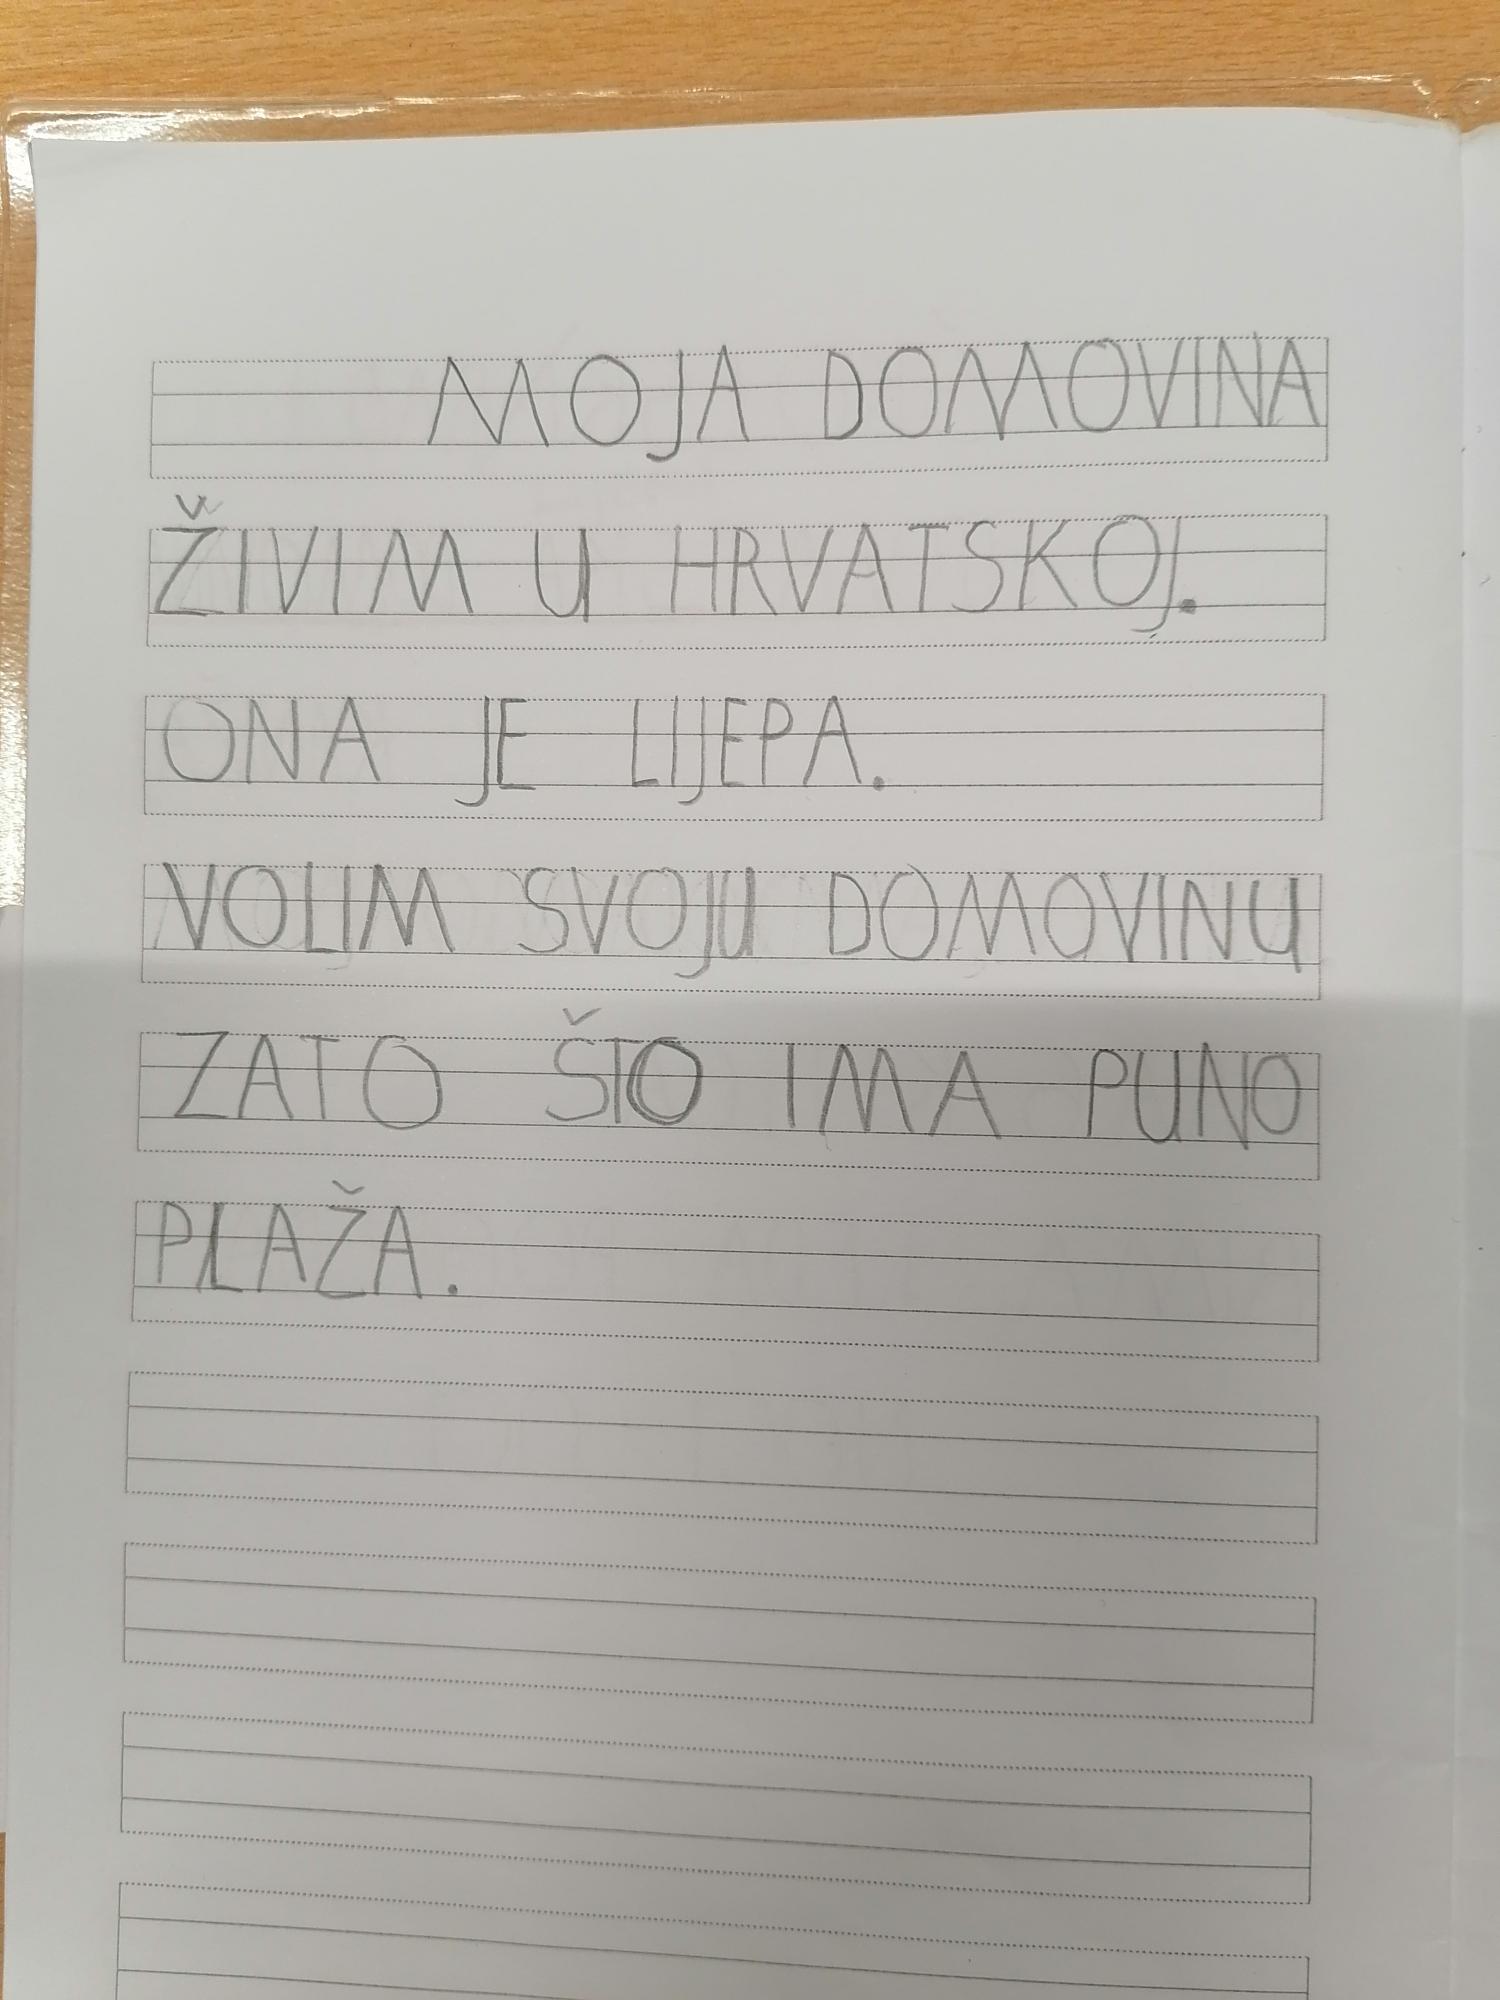 MOJA DOMOVINA
ŽIVIM U HRVATSKOJ.
ONA JE LIJEPA.
VOLIM SVOJU DOMOVINU
ZATO ŠTO IMA PUNO
PLAŽA.